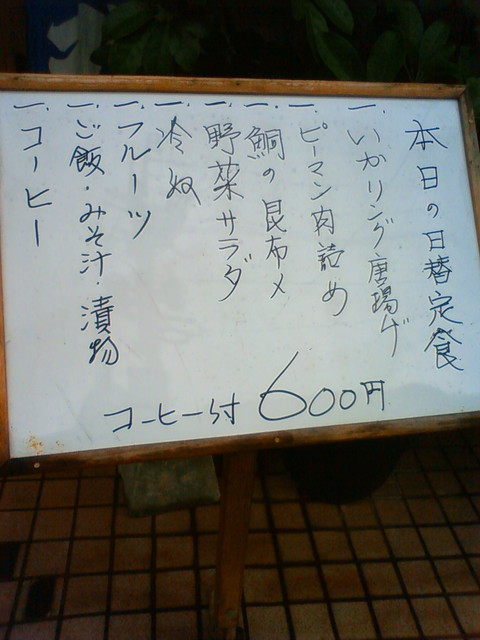 本日の日替定食
一、いかリング唐揚げ
一、ピーマン肉詰め
一、鯛の昆布〆
一、野菜サラダ
一、冷奴
一、フルーツ
一、ご飯・みそ汁・漬物
一、コーヒー
コーヒー付 600円